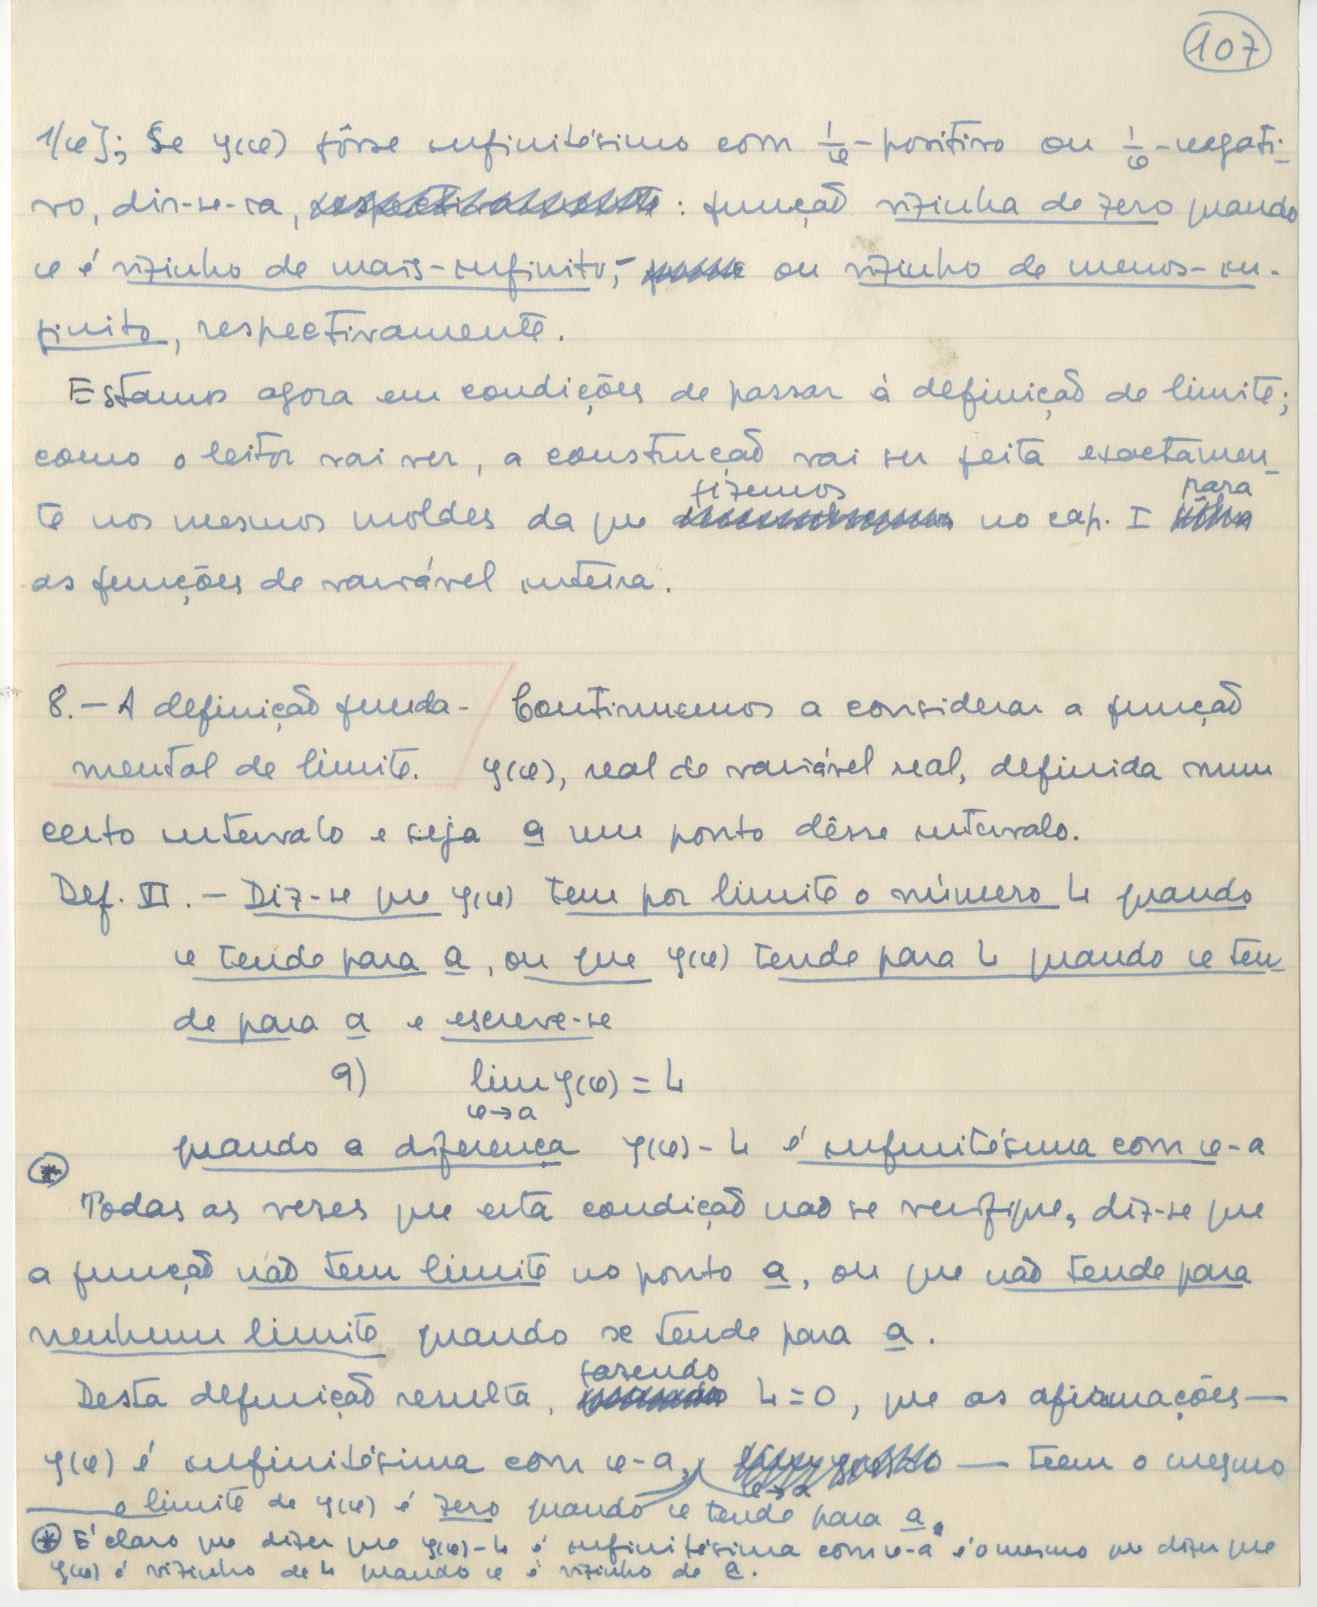 107
1/x]; Se y(x) fôsse infinitésimo com 1/x-positivo ou 1/x-negati-
vo, dir-se-ia, respectivamente: função vizinha de zero quando
x é vizinho de mais-infinito, ou vizinho de menos-in-
finito, respectivamente.
Estamos agora em condições de passar à definição de limite;
como o leitor vai ver, a construção vai ser feita exactamen-
fizemos para
te nos mesmos moldes da que no cap. I
as funções de variável inteira.
8.- A definição funda- Continuemos a considerar a função
mental de limite. y(x), real de variável real, definida num
certo intervalo e seja a um ponto dêsse intervalo.
Def. VI. - Diz-se que y(x) tem por limite o número L quando
x tende para a, ou que y(x) tende para L quando x ten-
de para a e escreve-se
9) lim y(x) = L
x→a
quando a diferença y(x)-L é infinitésima com x-a
* Todas as vezes que esta condição não se verifique, diz-se que
a função não tem limite no ponto a, ou que não tende para
nenhum limite quando x tende para a.
fazendo
Desta definição resulta, quando L=0, que as afirmações —
y(x) é infinitésima com x-a, — teem o mesmo
— o limite de y(x) é zero quando x tende para a.
* É claro que dizer que y(x)-L é infinitésima com x-a é o mesmo que dizer que
y(x) é vizinho de L quando x é vizinho de a.